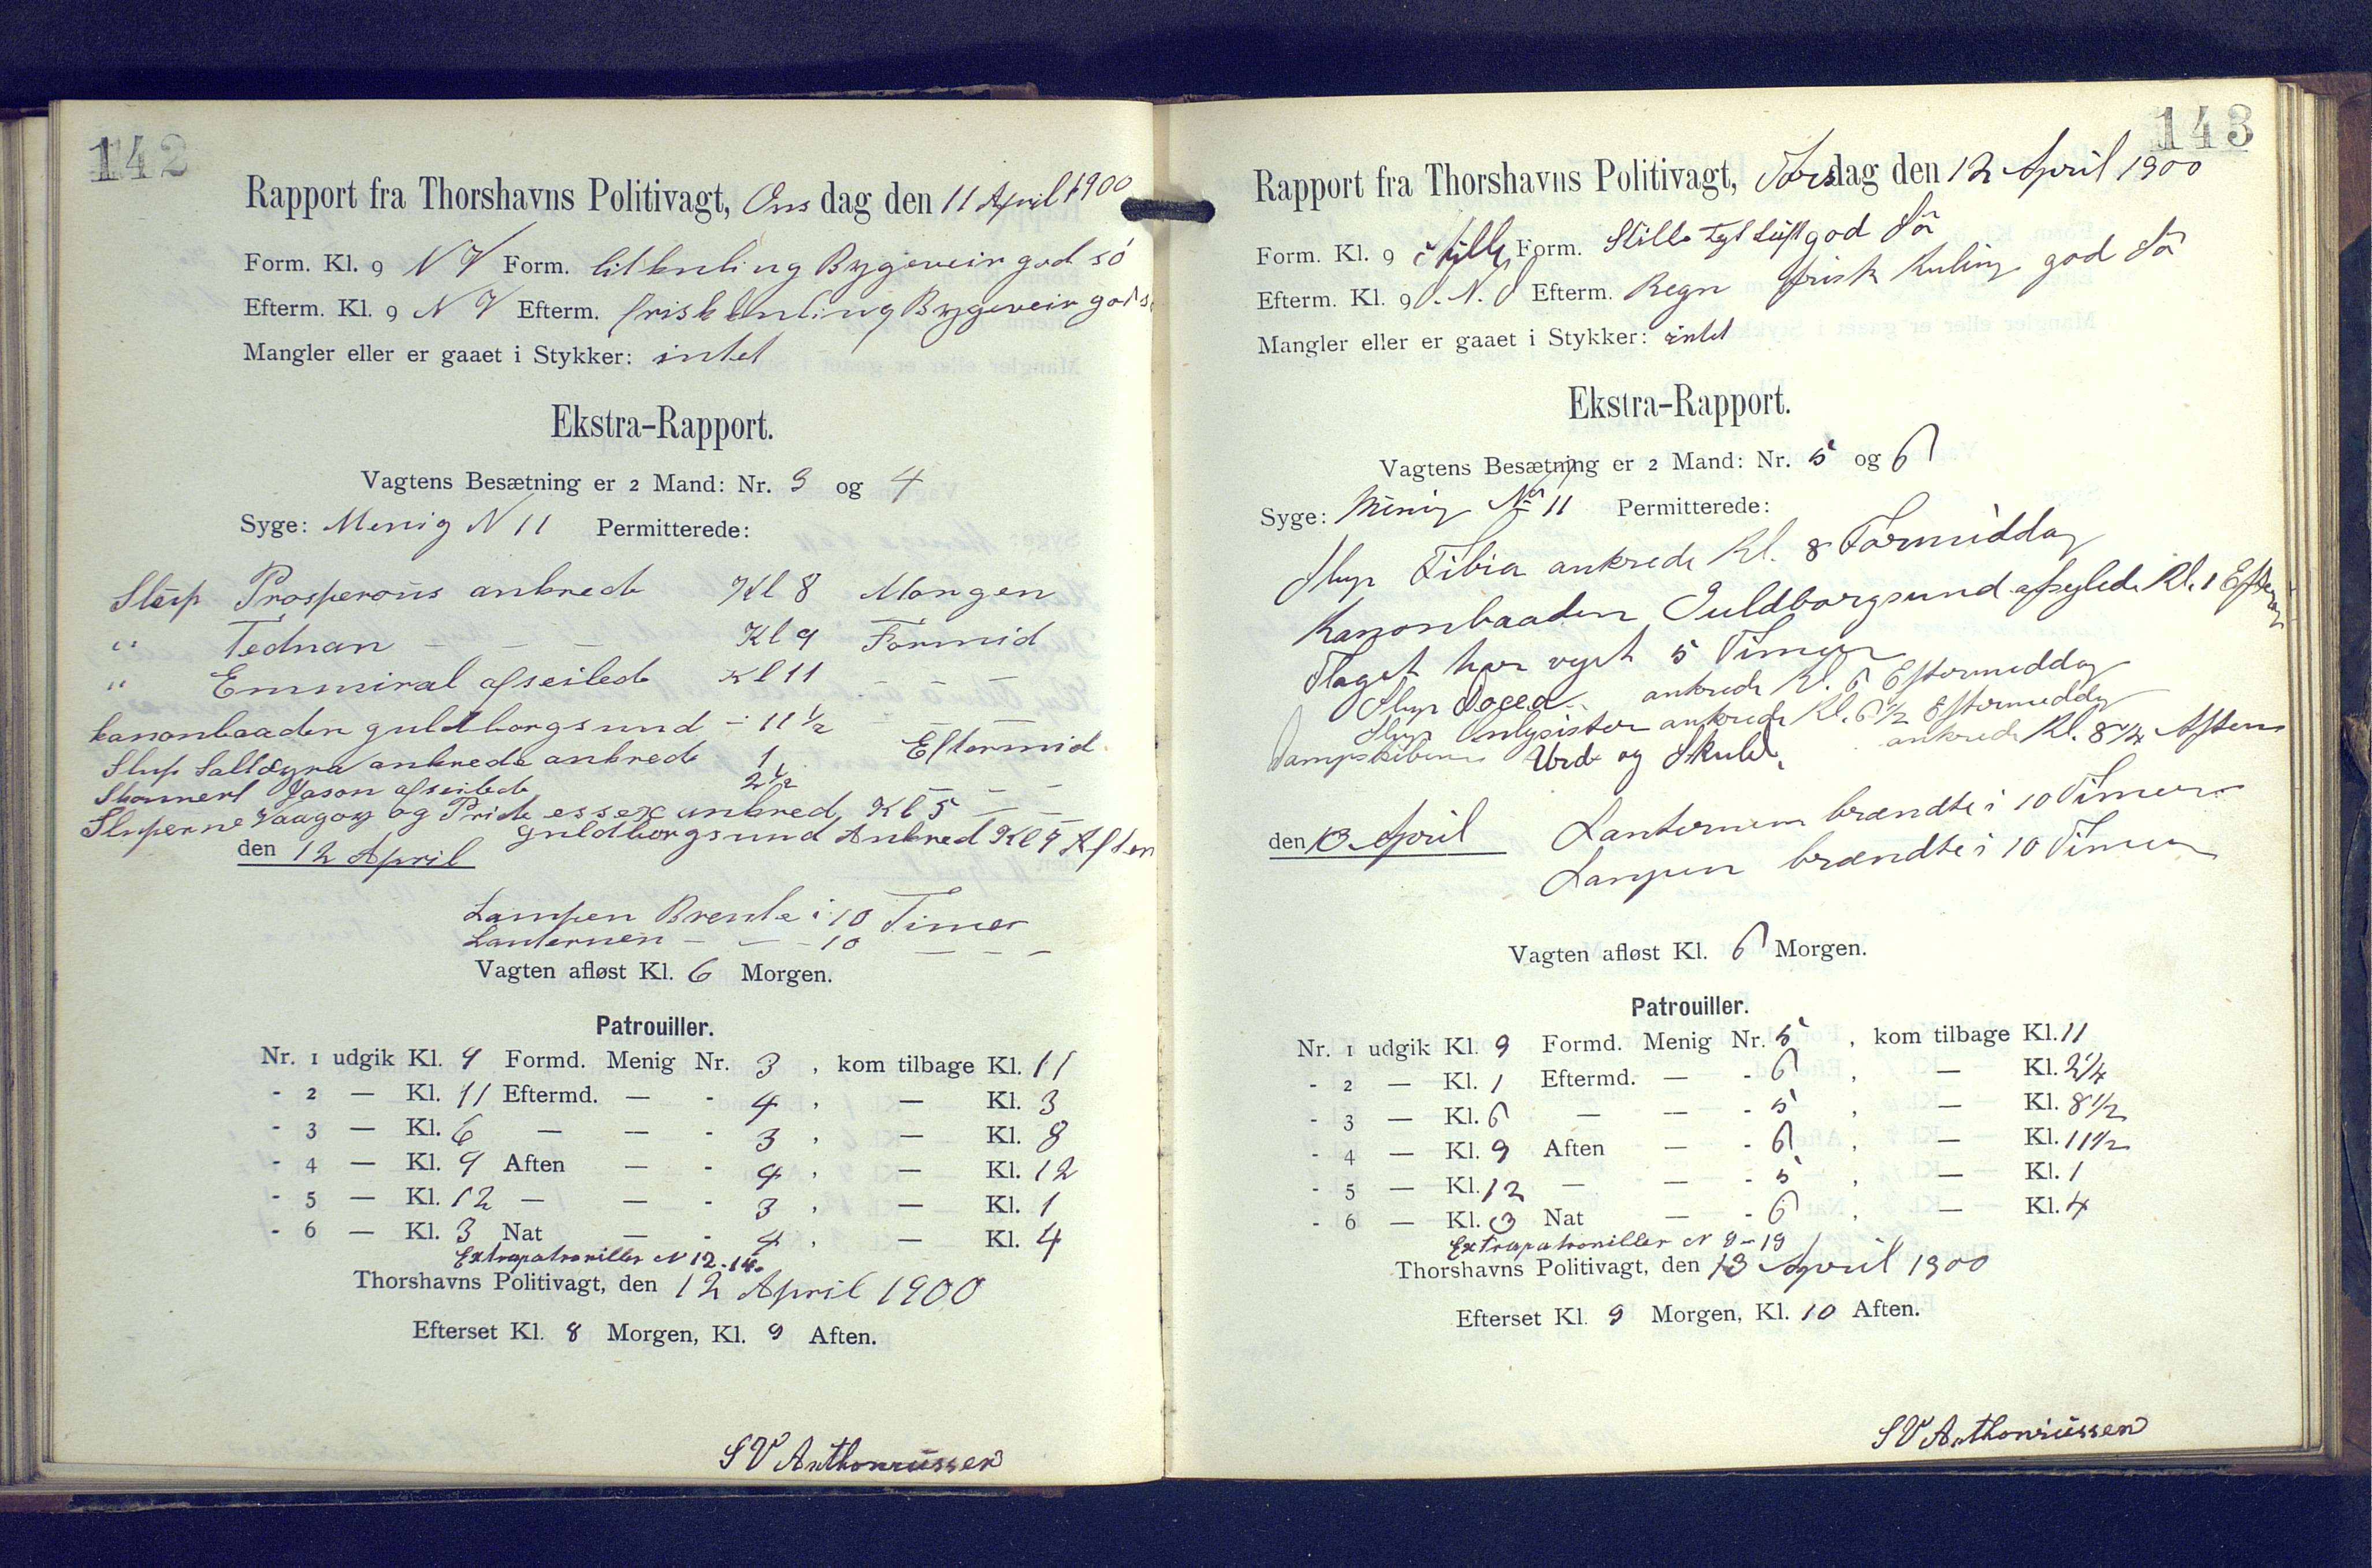 142
Rapport fra Thorshavns Politivagt, Onsdag den 11 April 1900
Form. Kl. 9 N V Form. litkuling Bygeveir god só
Efterm. Kl. 9 N V Efterm. friskkuling Bygeveir god s
Mangler eller er gaaet i Stykker: intet
Ekstra-Rapport.
Vagtens Besætning er 2 Mand: Nr. 3 og 4
Syge: Menig N 11 Permitterede:
Slup Prosperous ankrede Kl 8 Morgen
" Tednan - - - Kl 9 Formid
" Emmiral afseilede Kl 11 - - -
kanonbaaden guldborgsund - 11 ½ - -
Slup Saltdyra ankrede ankrede 1 Eftermid
Skonnert Jason afseilede 2 ½ - - -
Sluperne Vaagoy og Pride essex ankred Kl 5 - -
guldborgsund Ankred Kl 7 Aften
den 12 April
Lampen Brente i 10 Timer
Lanternen - - - 10 - - -
Vagten afløst Kl. 6 Morgen.
Patrouiller.
Nr. 1 udgik Kl. 9 Formd. Menig Nr. 3 , kom tilbage Kl. 11
- 2 — Kl. 11 Eftermd. — - 4 , — Kl. 3
- 3 — Kl. 6 — — - 3 , — Kl. 8
- 4 — Kl. 9 Aften — - 4 , — Kl. 12
- 5 — Kl. 12 — — - 3 , — Kl. 1
- 6 — Kl. 3 Nat — - 4 , — Kl. 4
Extrapatrouiller N 12-14.
Thorshavns Politivagt, den 12 April 1900
Efterset Kl. 8 Morgen, Kl. 9 Aften.
SV Anthoniussen
143
Rapport fra Thorshavns Politivagt, Torsdag den 12 April 1900
Form. Kl. 9 stille Form. Stille tyk Luft god Sö
Efterm. Kl. 9 N. O Efterm. Regn frisk Kuling god Sö
Mangler eller er gaaet i Stykker: intet
Ekstra-Rapport.
Vagtens Besætning er 2 Mand: Nr. 5 og 6
Syge: Menig No 11 Permitterede:
Slup Tibia ankrede Kl. 8 Formiddag
Kanonbaaden Guldborgsund afsejlede Kl. 1 Efterm
Flaget har vejet 5 Timer
Slup ankrede Kl. 6 Eftermiddag
Slup ankrede Kl. 6 ½ Eftermiddag
Dampskibene Urd og Skuld. ankrede Kl. 8 ¼ Aften
den 13 April Lanternen brændte i 10 Timer
Lampen brændte i 10 Timer
Vagten afløst Kl. 6 Morgen.
Patrouiller.
Nr. 1 udgik Kl. 9 Formd. Menig Nr. 5 , kom tilbage Kl. 11
- 2 — Kl. 1 Eftermd. — - 6 , — Kl. 2¼
- 3 — Kl. 6 — — - 5 , — Kl. 8½
- 4 — Kl. 9 Aften — - 6 , — Kl. 11½
- 5 — Kl. 12 — — - 5 , — Kl. 1
- 6 — Kl. 3 Nat — - 6 , — Kl. 4
Extrapatrouiller N 9-19
Thorshavns Politivagt, den 13 April 1900
Efterset Kl. 9 Morgen, Kl. 10 Aften.
SV Anthoniussen